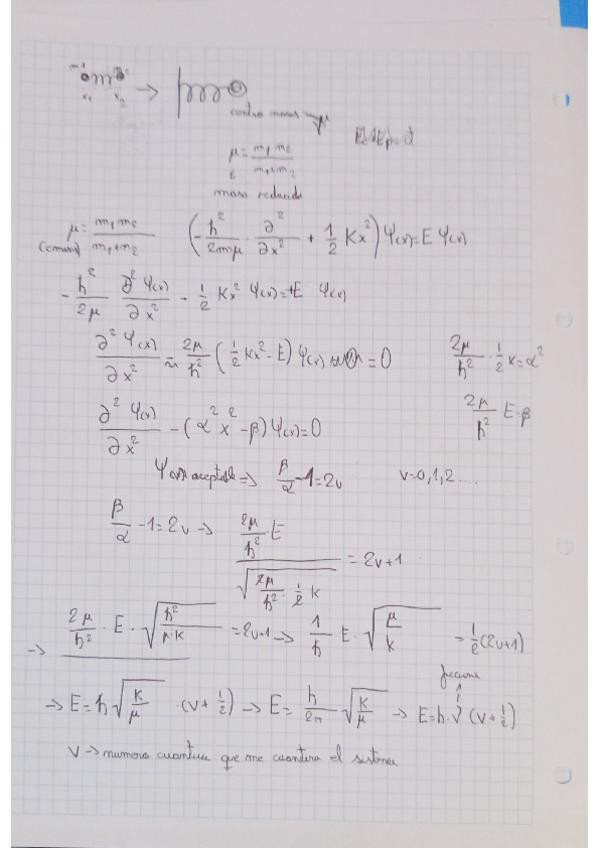 m₁ m₂ →
x₁ x₂
centro masas μ
μ = m₁m₂ / (m₁+m₂)
masa reducida
μ = m₁m₂ / (m₁+m₂) (-ħ²/2μ · ∂²/∂x² + 1/2 Kx²) Ψ(x) = E Ψ(x)
-ħ²/2μ ∂²Ψ(x)/∂x² - 1/2 Kx² Ψ(x) = +E Ψ(x)
∂²Ψ(x)/∂x² - 2μ/ħ² (1/2 Kx² - E) Ψ(x) = 0 2μ/ħ² · 1/2 K = α²
2μ/ħ² E = β
∂²Ψ(x)/∂x² - (α²x² - β) Ψ(x) = 0
Ψ(x) aceptable ⇒ β/α - 1 = 2v v = 0,1,2 ....
β/α - 1 = 2v → (2μ/ħ² · E) / √(2μ/ħ² · 1/2 K) = 2v+1
→ 2μ/ħ² · E · √(ħ²/μ·K) = 2v+1 → 1/ħ E · √(μ/K) = 1/2 (2v+1)
→ E = ħ √(K/μ) · (v + 1/2) → E = h/2π √(K/μ) → E = h·ν (v + 1/2)
v → numero cuantico que me cuantiza el sistema